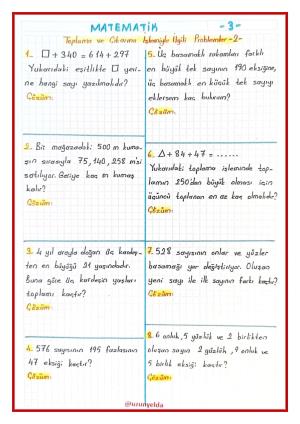 MATEMATİK -3-
Toplama ve Çıkarma İşlemiyle İlgili Problemler -2-
1. □ + 340 = 614 + 297
Yukarıdaki eşitlikte □ yeri-
ne hangi sayı yazılmalıdır?
Çözüm:
2. Bir mağazadaki 500 m kuma-
şın sırasıyla 75, 140, 258 m'si
satılıyor. Geriye kaç m kumaş
kalır?
Çözüm:
3. 4 yıl arayla doğan üç kardeş-
ten en büyüğü 21 yaşındadır.
Buna göre üç kardeşin yaşları
toplamı kaçtır?
Çözüm:
4. 576 sayısının 195 fazlasının
47 eksiği kaçtır?
Çözüm:
5. Üç basamaklı rakamları farklı
en büyük tek sayının 190 eksiğine,
üç basamaklı en küçük tek sayıyı
eklersem kaç bulurum?
Çözüm:
6. △ + 84 + 47 = ......
Yukarıdaki toplama işleminde top-
lamın 250'den büyük olması için
üçüncü toplanan en az kaç olmalıdır?
Çözüm:
7. 528 sayısının onlar ve yüzler
basamağı yer değiştiriyor. Oluşan
yeni sayı ile ilk sayının farkı kaçtır?
Çözüm:
8. 6 onluk, 5 yüzlük ve 2 birlikten
oluşan sayının 2 yüzlük, 9 onluk ve
5 birlik eksiği kaçtır?
Çözüm:
@urunyelda